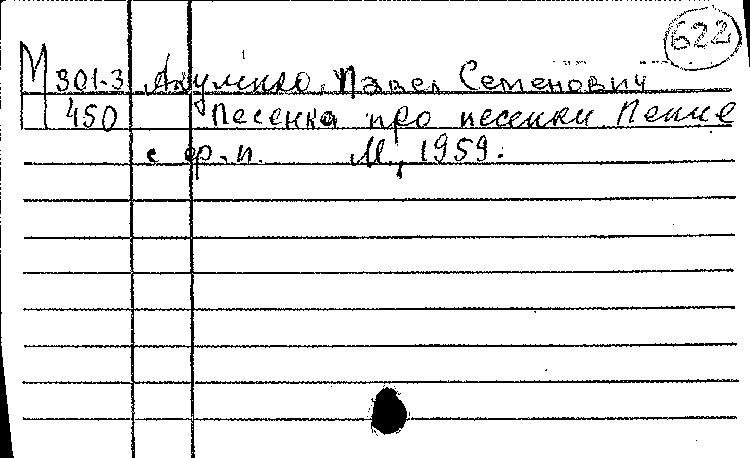 622
М 301-3 Акуленко, Павел Семенович
450 Песенка про песенки Пение
с ф.-п. М., 1959.